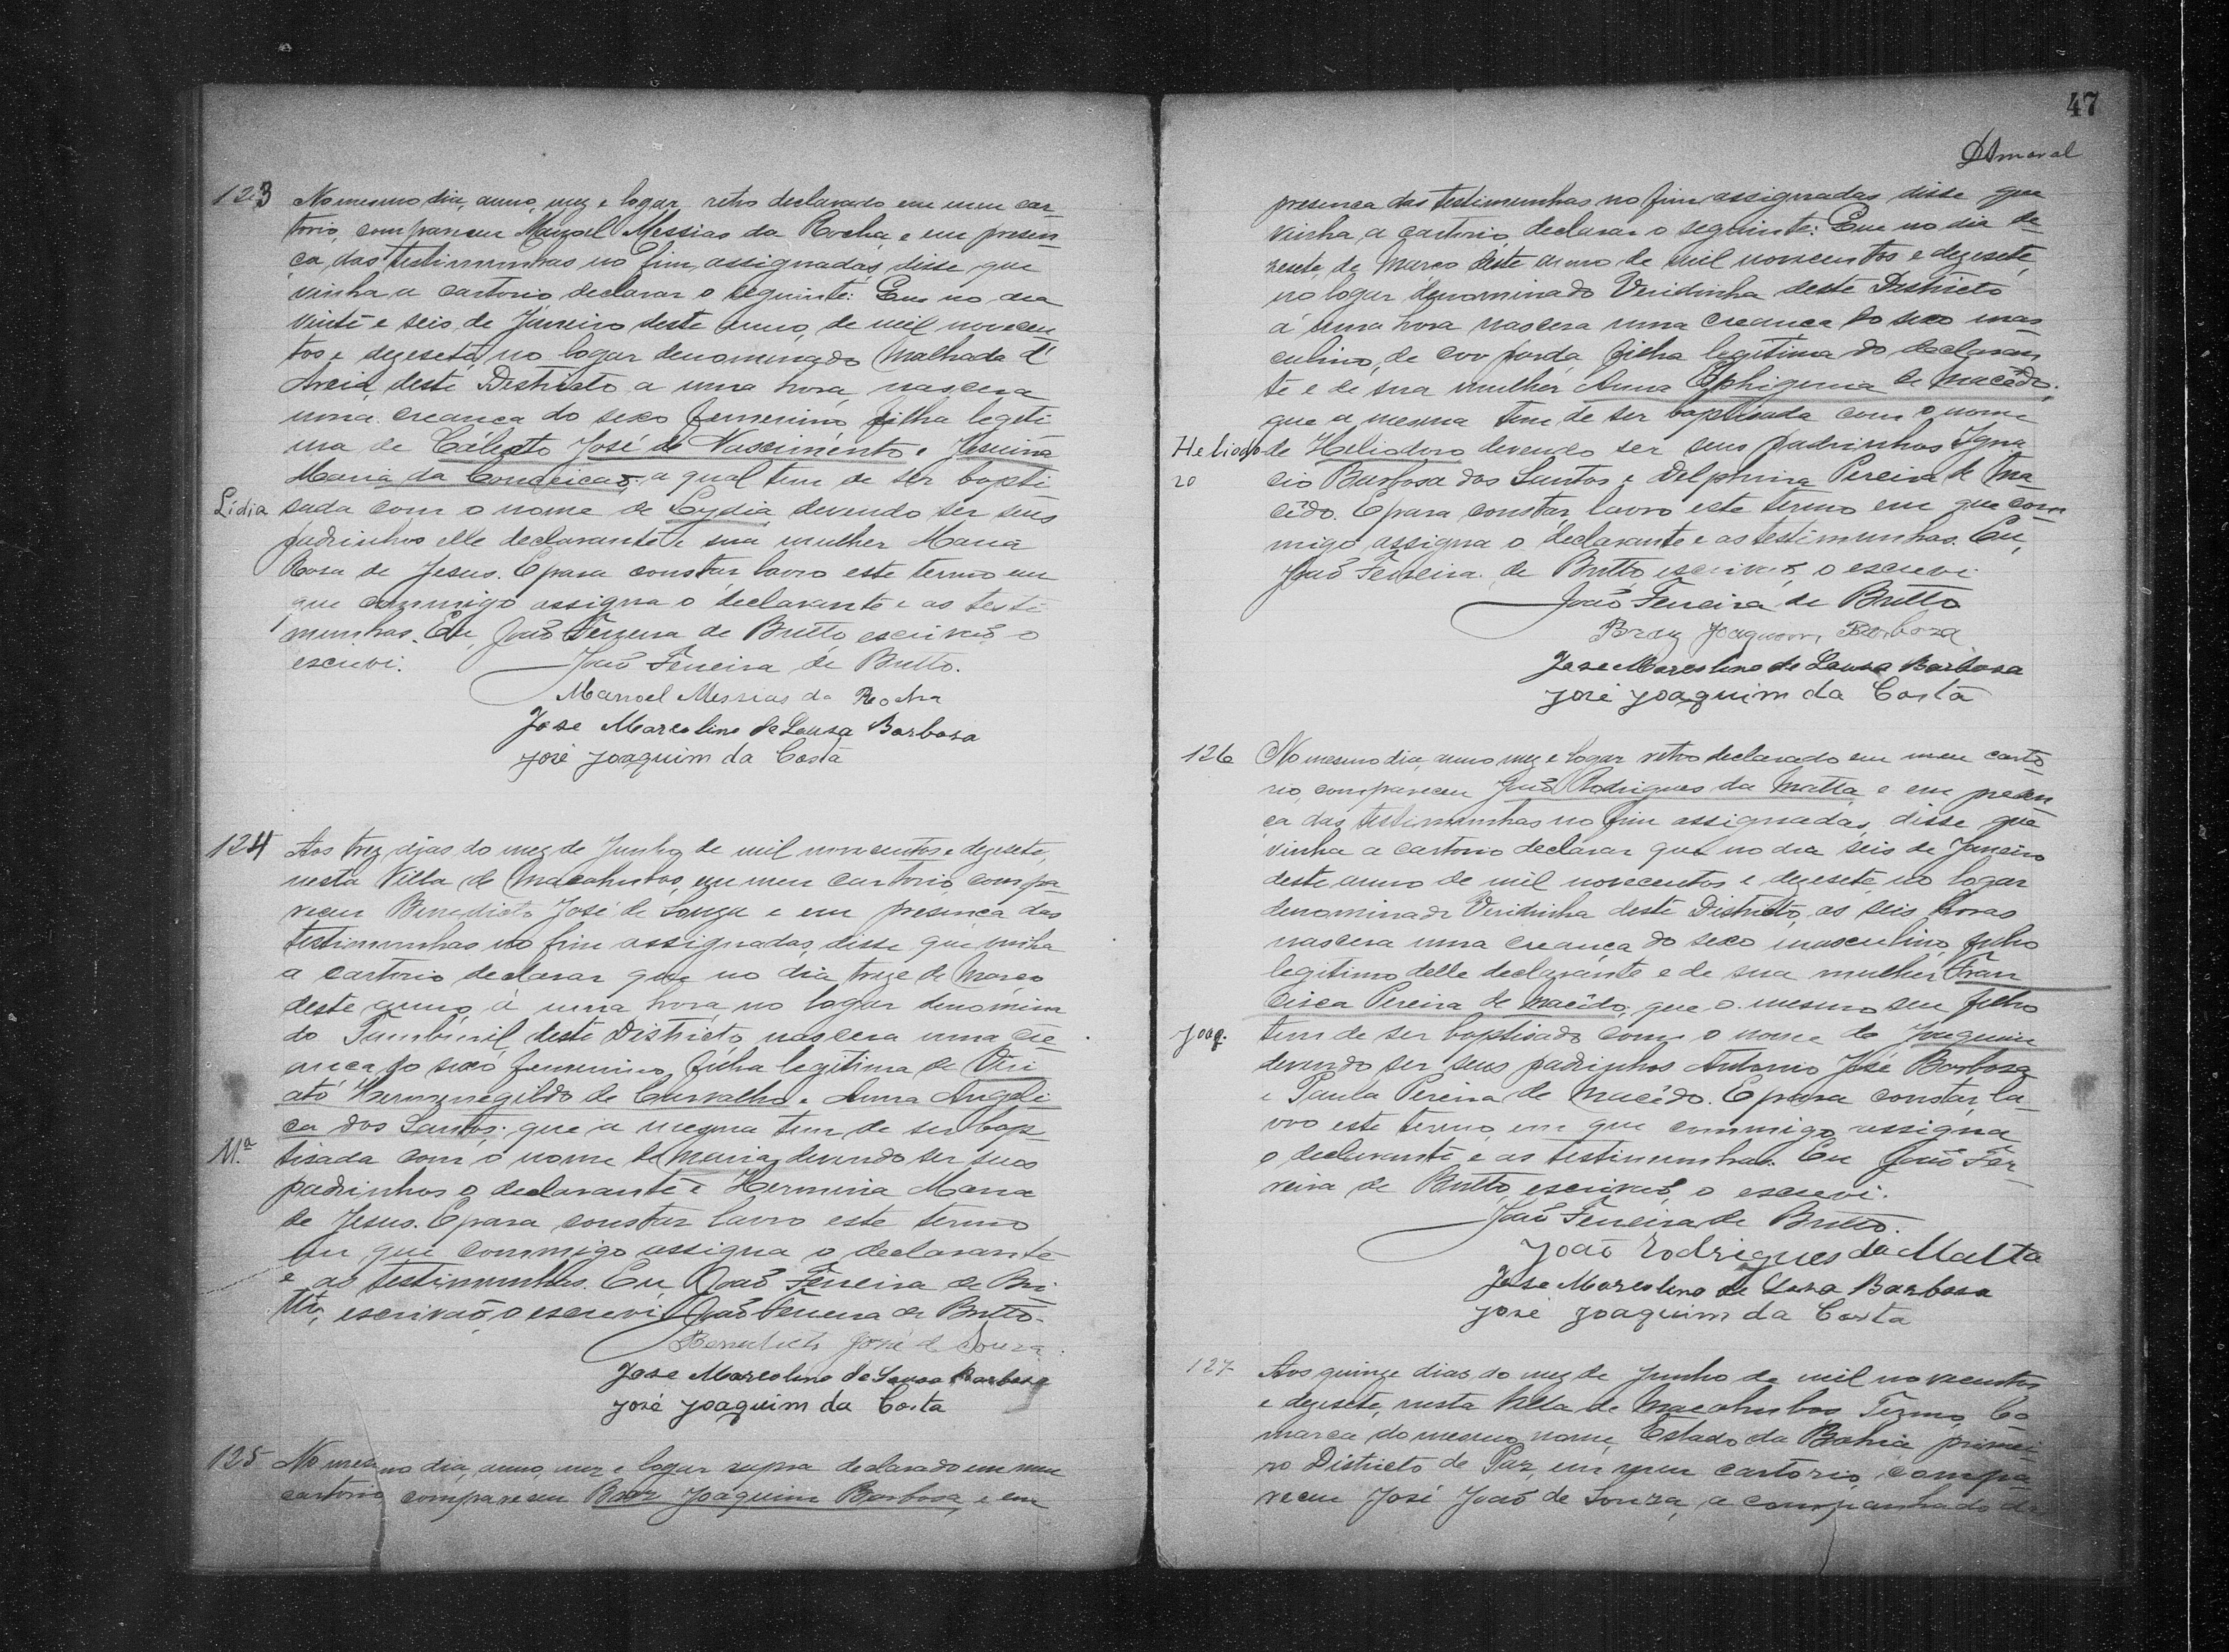 123 No mesmo dia, anno, mez e logar retro declarado em meu car-
torio, compareceu Manoel Messias da Rocha, e em presen-
ça das testimunhas no fim assignadas, disse que
vinha a cartorio declarar o seguinte: Que no dia
vinte e seis de Janeiro deste anno de mil novecen-
tos e dezesete, no logar denominado Malhada d'
Areia, deste Districto a uma hora, nascera
uma creança do sexo femenino, filha legiti
ma de Calisto José do Nascimento e Jesuina
Maria da Conceicaõ; a qual tem de ser bapti-
Lídia sada com o nome de Lydia, devendo ser seus
padrinhos elle declarante e sua mulher Maria
Rosa de Jesus. E para constar lavro este termo em
que commigo assigna o declarante e as testi-
munhas. Eu, Joaõ Ferreira de Britto, escrivaõ o
escrevi. Joaõ Ferreira de Britto.
Manoel Messias da Rocha
Jose Marcolino de Sousa Barbosa
José Joaquim da Costa
124 Aos trez dias do mez de Junho de mil novecentos e dezesete,
nesta Villa de Macahubas, em meu cartorio, compa-
receu Benedicto José de Souza e em presença das
testimunhas no fim assignadas, disse que vinha
a cartorio declarar que no dia treze de Março
deste anno, á uma hora, no logar denomina
do Tamburil, deste Districto, nascera uma cre-
ança do sexo femenino, filha legitima de Viri
ato Hermenegildo de Carvalho e Anna Angeli-
ca dos Santos; que a mesma tem de ser bap-
M.ª tisada com o nome de Maria, devendo ser seus
padrinhos o declarante e Hermina Maria
de Jesus. E para constar lavro este termo
em que commigo assigna o declarante
e as testimunhas. Eu, Joaõ Ferreira de Bri-
tto, escrivaõ, o escrevi. Joaõ Ferreira de Britto.
Benedicto José de Souza
Jose Marcolino de Sousa Barbosa
José Joaquim da Costa
125 No mesmo dia, anno, mez e logar supra declarado em meu
cartorio compareceu Braz Joaquim Barbosa, e em
47
DAmaral
presença das testimunhas no fim assignadas, disse que
vinha a cartorio declarar o seguinte: Que no dia de-
zesete de Março deste anno de mil novecentos e dezesete,
no logar denominado Veridinha deste Districto
á uma hora nascera uma creança do sexo mas
culino, de cor parda, filha legitima do declaran
te e de sua mulher Anna Ephigenia de Macêdo;
que a mesma tem de ser baptisada com o nome
Heliodo de Heliodoro devendo ser seus padrinhos Igna
ro cio Barbosa dos Santos e Delphina Pereira de Ma-
cêdo. E para constar, lavro este termo em que com
migo assigna o declarante e as testimunhas. Eu,
Joaõ Ferreira de Britto, escrivaõ, o escrevi.
Joaõ Ferreira de Britto
Braz Joaquim Barboza
Jose Marcolino de Sousa Barbosa
José Joaquim da Costa
126 No mesmo dia, anno mez e logar retro declarado em meu carto-
rio, compareceu Joaõ Rodrigues da Matta, e em presen
ça das testimunhas no fim assignadas, disse que
vinha a cartorio declarar que no dia seis de Janeiro
deste anno de mil novecentos e dezesete, no logar
denominado Veridinha deste Districto, as seis horas
nascera uma creança do sexo masculino, filho
legitimo delle declarante e de sua mulher Fran
cisca Pereira de Macêdo, que o mesmo seu filho
Joaq. tem de ser baptisado com o nome de Joaquim
devendo ser seus padrinhos Antonio José Barbosa
e Paula Pereira de Macêdo. E para constar, la-
vro este termo, em que commigo assigna
o declarante e as testimunhas. Eu Joaõ Fer-
reira de Britto, escrivaõ, o escrevi.
Joaõ Ferreira de Britto.
João Rodrigues da Matta
Jose Marcolino de Souza Barbosa
José Joaquim da Costa
127 Aos quinze dias do mez de Junho de mil novecentos
e dezesete, nesta Villa de Macahubas, Termo, Co-
marca do mesmo nome, Estado da Bahia primei-
ro Districto de Paz, em meu cartorio, compa-
receu José Joaõ de Souza, acompanhado de